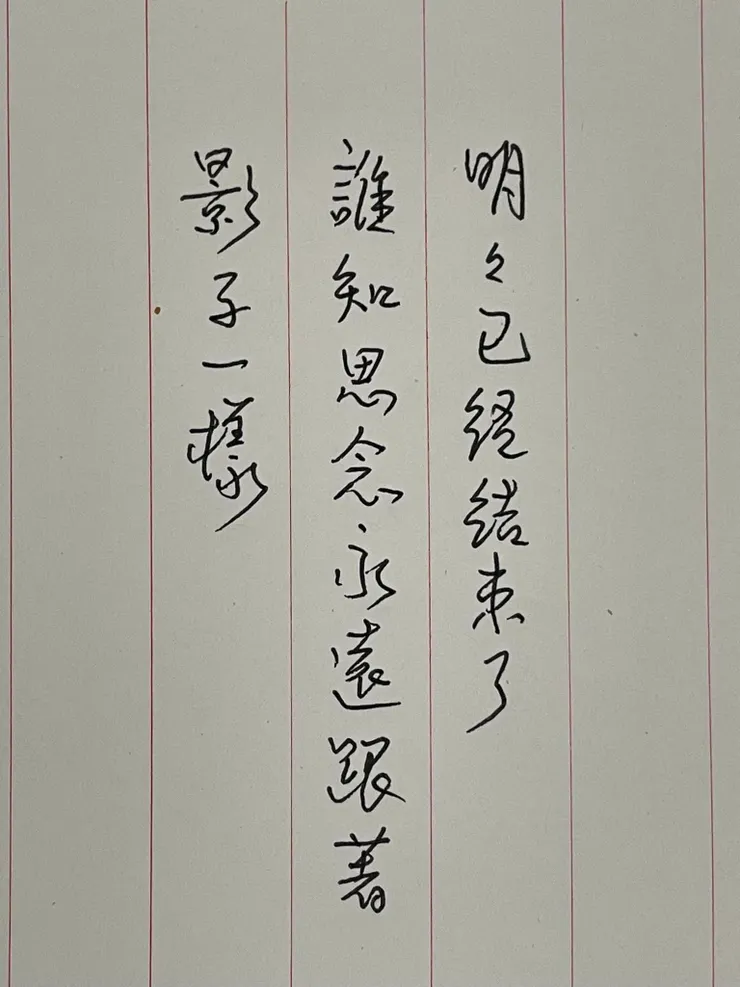 明々已經結束了
誰知思念永遠跟著
影子一樣